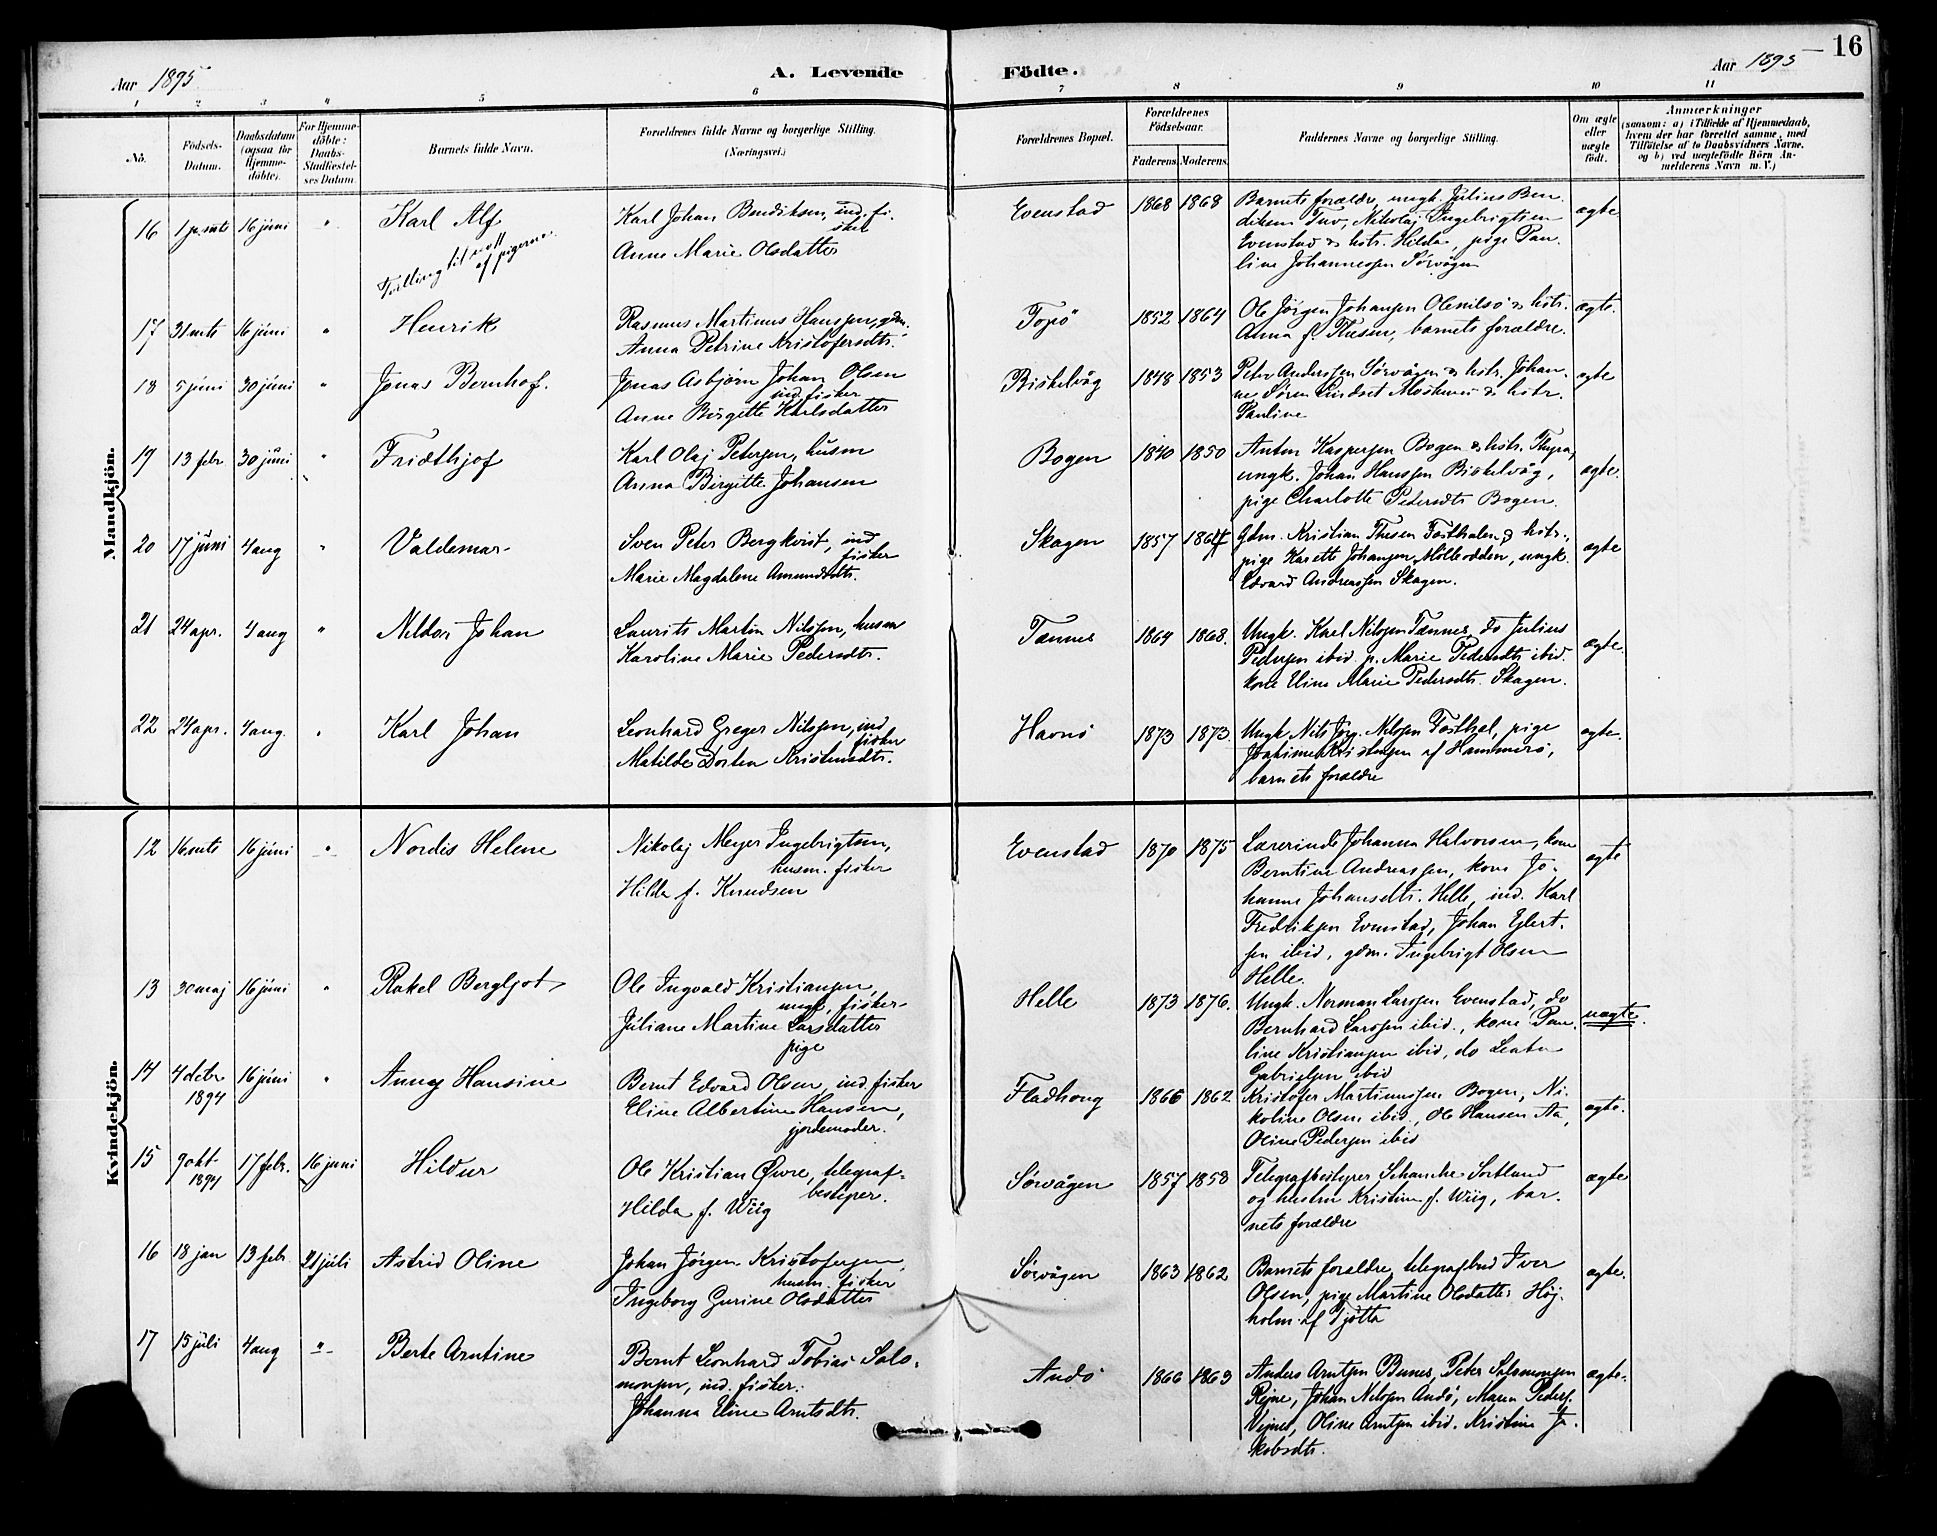 Aar 1895
A. Levende Födte.
Aar 1895
16
1 2 3 4 5 6 7 8 9 10 11
No.
Födsels-Datum.
Daabsdatum (ogsaa for Hjemme-döbte).
For Hjemme-döbte: Daabs-Stadfæstel-ses Datum.
Barnets fulde Navn.
Forældrenes fulde Navne og borgerlige Stilling. (Næringsvei.)
Forældrenes Bopæl.
Forældrenes Födselsaar.
Faderens. Moderens.
Faddernes Navne og borgerlige Stilling.
Om ægte eller uægte födt.
Anmærkninger
(saasom: a) i Tilfælde af Hjemmedaab,
hvem der har forrettet samme, med
Tilföielse af to Daabsvidners Navne,
og b) ved uægtefödte Börn An-
melderens Navn m. V.)
Mandkjön.
16 1 16 juni " Karl Alf
Tvilling til no 11 af pigerne
Karl Johan Bendiksen, ind. fisker
Anne Marie Olsdatter
Evenstad 1868 1868
Barnets forældre, ungk. Julius Ben
diksen Tuv, Nikolaj Ingebrigtsen
Evenstad & hstr. Hilda, pige Pau
line Johannessen Sørvågen
ægte
17 31 mts 16 juni " Henrik
Rasmus Martinus Hanssen, gdm.
Anna Petrine Kristofersdtr.
Topø 1852 1864
Ole Jörgen Johansen Olenilsø & hstr.
Anna f. Thesen, barnets forældre.
ægte.
18 5 juni 30 juni " Jonas Bernhof.
Jonas Asbjørn Johan Olsen
ind. fisker
Anne Birgitte Karlsdatter
Biskelvåg 1848 1853
Peter Anderssen Sørvågen & hstr. Johan
ne, Søren Lindset Moskenes & hstr.
Pauline
ægte
19 13 febr 30 juni " Fridthjof
Karl Olaj Petersen, husm
Anna Birgitte Johansen
Bogen 1840 1850
Anton Kaspersen Bogen & hstr. Thyra,
ungk. Johan Hanssen Biskelvåg,
pige Charlotte Pedersdtr Bogen.
ægte.
20 17 juni 4 aug " Valdemar
Sven Peter Bergkvist, ind
fisker
Marie Magdalene Amundsdtr.
Skagen 1857 1864
Gdm. Kristian Thesen & hstr.,
pige Karette Johansen, Mølleodden, ungk
Edvard Andreassen Skagen.
ægte
21 24 apr. 4 aug " Neldor Johan
Laurits Martin Nilssen, husm
Karoline Marie Pedersdtr.
Tennes 1864 1868.
Ungk. Karl Nilssen Tennes, do Julius
Pedersen ibid p. Marie Pedersdtr ibid.
kone Eline Marie Pedersdtr. Skagen.
ægte.
22 24 apr. 4 aug. " Karl Johan
Leonhard Greger Nilssen, ind
fisker
Matilde Dortea Kristensdtr.
Havnø 1873 1873.
Ungk Nils Jörg. Nilssen, pige
Kristensen af Hammerö,
barnets forældre
ægte.
Kvindekjön.
12 16 mts 16 juni " Nordis Helene
Nikolaj Meyer Ingebrigtsen,
husm. fisker
Hilda f. Knudsen
Evenstad 1870 1875
Lærerinde Johanna Halvorsen, kone
Berntine Andreassen, kone Jo-
hanne Johansdtr. Helle, ind. Karl
Fredriksen Evenstad, Johan Eilert-
sen ibid, gdm. Ingebrigt Olsen
Helle.
ægte
13 30 maj 16 juni " Rakel Bergljot
Ole Ingvald Kristiansen,
ungk. fisker
Juliane Martine Larsdatter
pige
Helle 1873 1876.
Ungk. Norman Larssen Evenstad, do
Bernhard Larssen ibid., kone Pau
line Kristiansen ibid, do Leata
Gabrielsen ibid
uægte.
14 4 decbr 1894 16 juni " Anna Hansine
Bernt Edvard Olsen, ind. fisker
Eline Albertine Hansen,
jordemoder.
Fladhoug 1866 1862
Kristofer Martinussen Bogen, Ni-
koline Olsen ibid., Ole Hansen Aa,
Oline Pedersen ibid
ægte.
15 9 okt 1894 17 febr. 16 juni Hildur
Ole Kristian Øvre, telegraf-
bestyrer.
Hilda f. Wiig
Sørvågen 1857 1858
Telegrafbestyrer Schancke Sortland
og hustru Kristine f. Wiig, bar-
nets forældre
ægte
16 18 jan 13 febr 21 juli Astrid Oline
Johan Jörgen Kristofersen,
husm. fisker
Ingeborg Gurine Olsdatter
Sørvågen 1863 1862
Barnets forældre, telegrafbud Iver
Olsen, pige Martine Olsdatter Høj-
holm af Tjøtta
ægte.
17 15 juli 4 aug " Berte Arntine
Bernt Leonhard Tobias Salo-
monsen, ind. fisker.
Johanna Eline Arntsdtr.
Andö 1866 1863
Anders Arntsen Bunes, Peter Salomonsen
Rejne, Johan Nilssen Andö, Maren Peders.
Oline Arntsen ibid. Kristine Ja-
kobsdtr.
ægte.